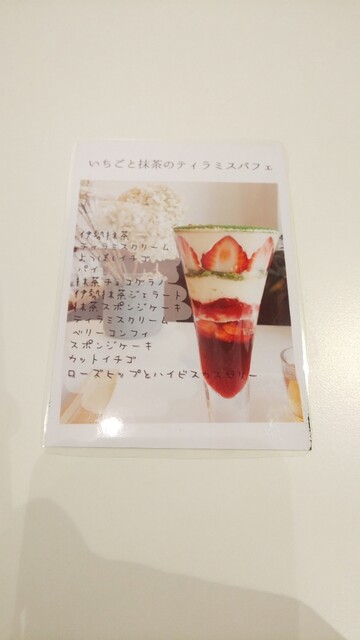 いちごと抹茶のティラミスパフェ
伊勢抹茶
ティラミスクリーム
よつぼしイチゴ
パイ
抹茶チョコグラノ
伊勢抹茶ジェラート
抹茶スポンジケーキ
ティラミスクリーム
ベリーコンフィ
スポンジケーキ
カットイチゴ
ローズヒップとハイビスカスゼリー